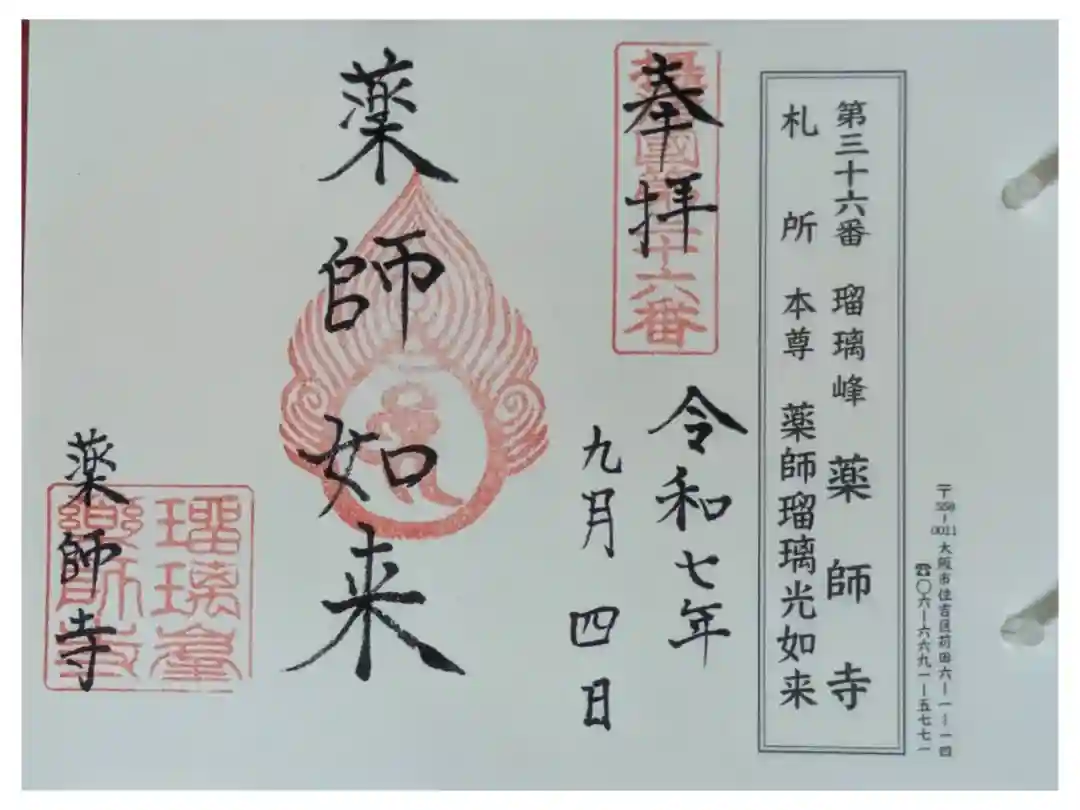 第三十六番 瑠璃峰 薬師寺
札所本尊 薬師瑠璃光如来
〒558-0011 大阪市住吉区苅田六-一-一四
☎〇六-六六九一-五七七一
奉拝
國第三十六番
令和七年
九月四日
薬師如来
薬師寺
瑠璃峯
藥師寺